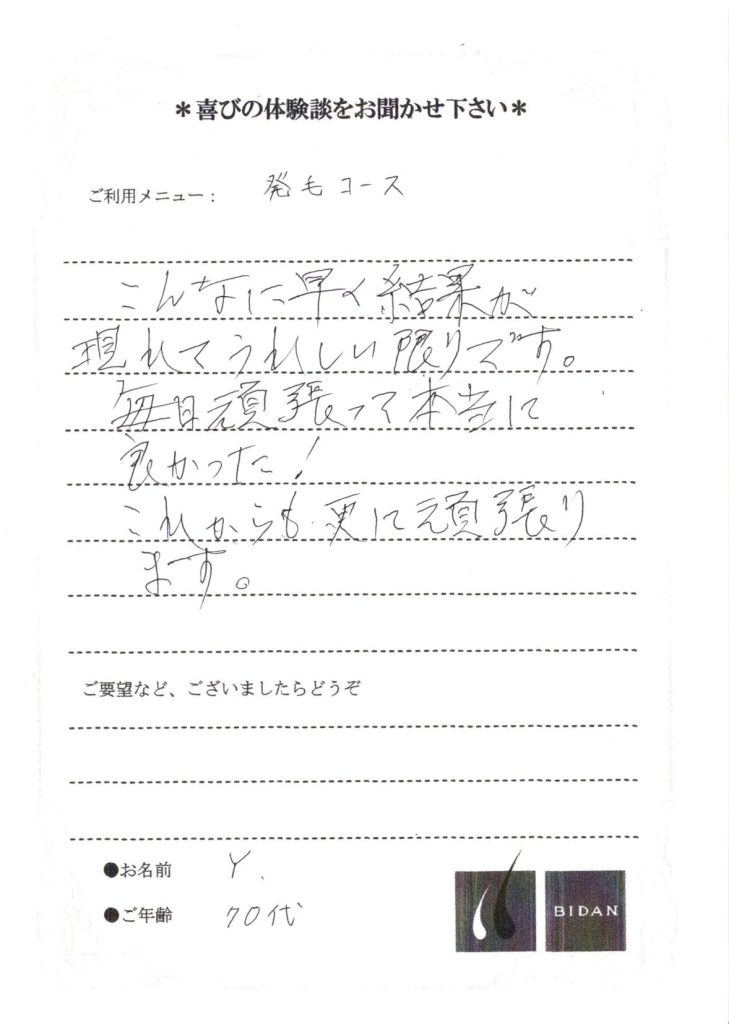 ＊喜びの体験談をお聞かせ下さい＊
ご利用メニュー： 発毛コース
こんなに早く結果が
現れてうれしい限りです。
毎日頑張って本当に
良かった！
これからも更に頑張り
ます。
ご要望など、ございましたらどうぞ
●お名前 Y.
●ご年齢 70代
BIDAN